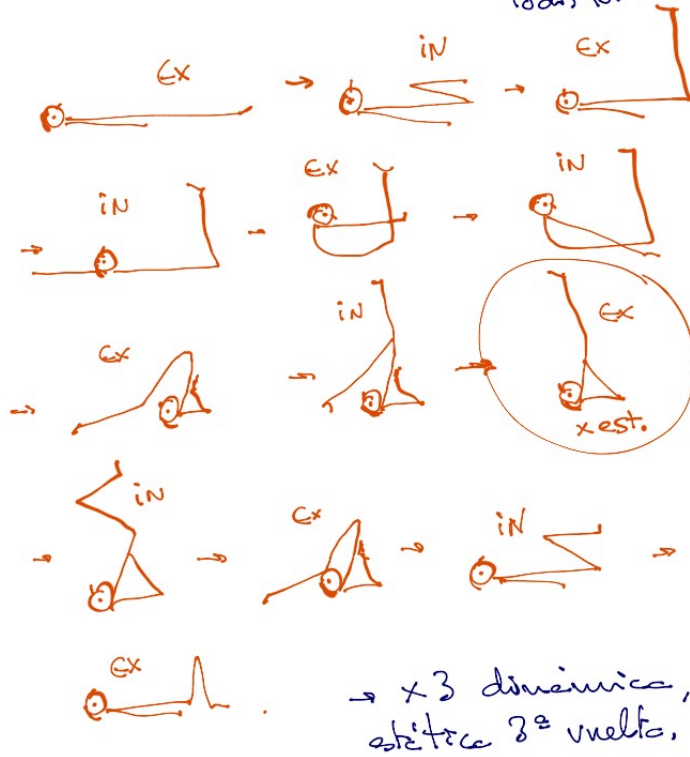 Ex
iN
Ex
iN
Ex
iN
Ex
iN
Ex
x est.
iN
Ex
iN
Ex
→ x3 dinámica,
estática 3ª vuelta.